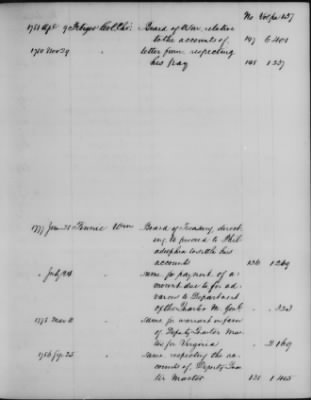 No Vol pa 157
1781 Apl 9 Febiger Col Chr: Board of War relative
to the accounts of, 147 6 401
1780 Nov 29 letter from, respecting
his pay 148 1 337
1777 Finnie Wm Board of Treasury, direct
ing to proceed to Phil
adelphia to settle his
accounts 136 1 269
" July 24 same for payment of a
mount due to for ad
vances to Department
of the Quarter M. Genl " " 323
1778 Mar same for warrant in favor
of Deputy Quarter Mas
ter for Virginia " 2 169
25 same respecting the ac
counts of, Deputy Quar
ter Master 138 1 465